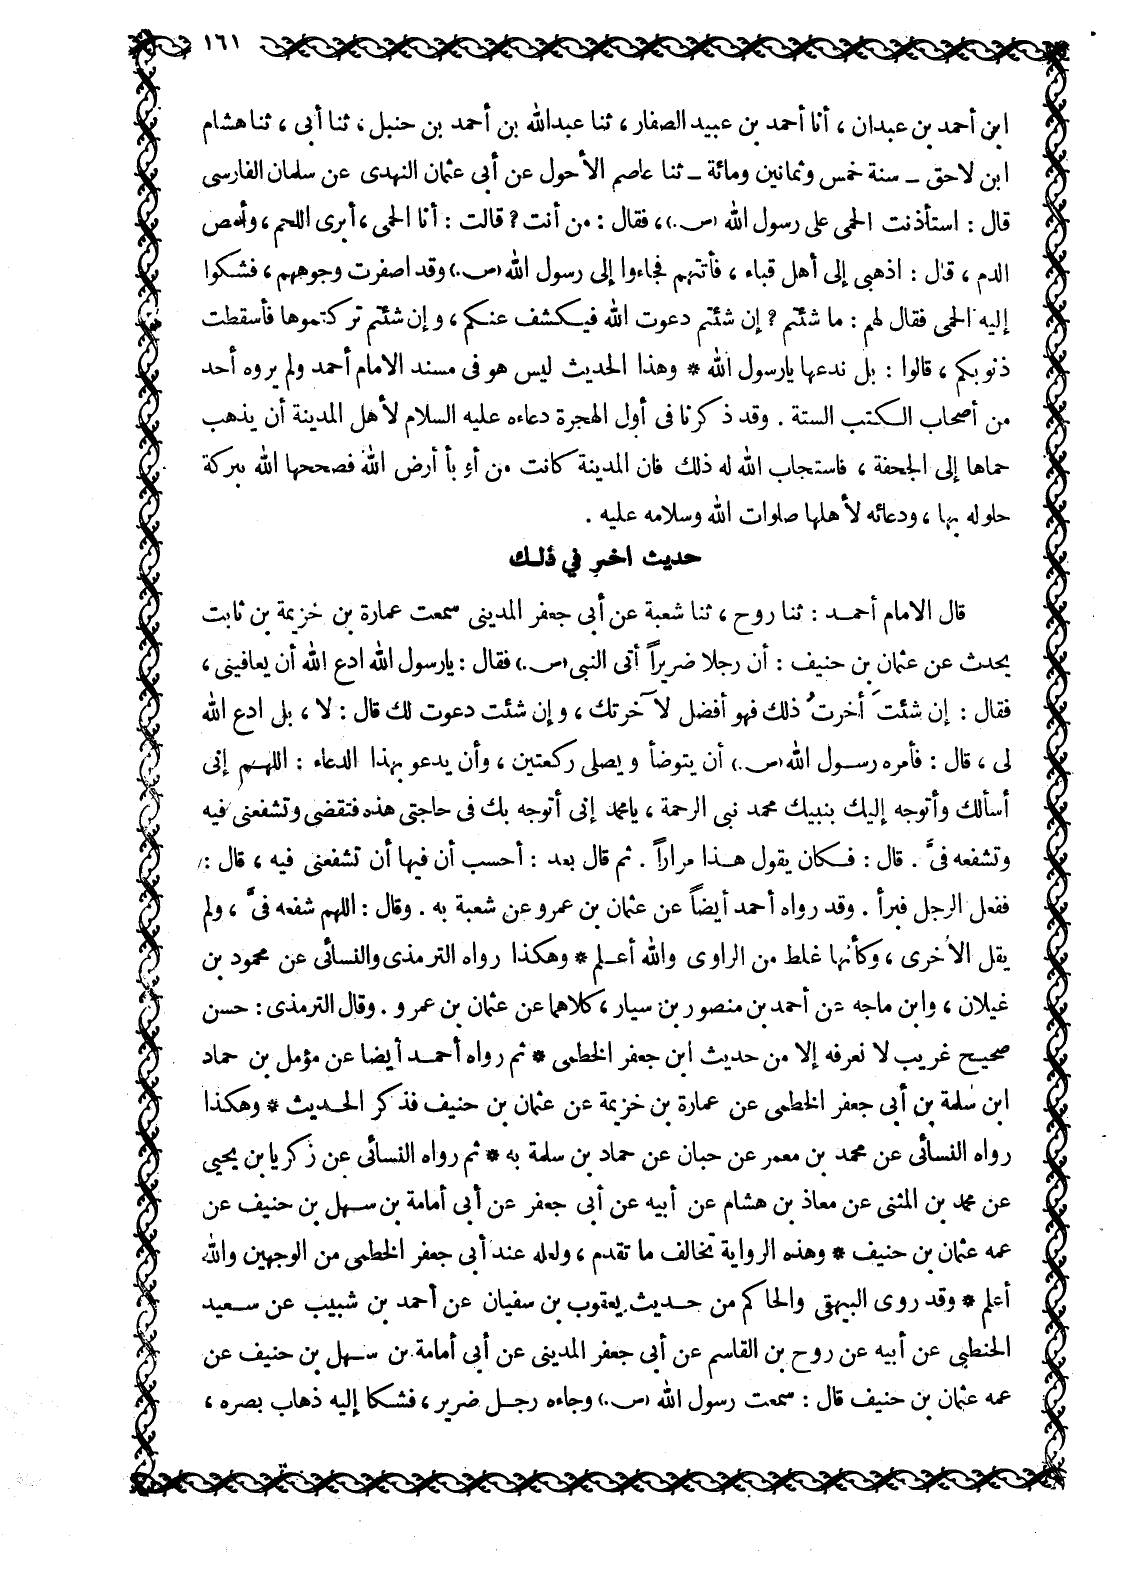 ١٦١
ابن أحمد بن عبدان ، أنا أحمد بن عبيد الصفار ، ثنا عبدالله بن أحمد بن حنبل ، ثنا أبى ، ثنا هشام
ابن لاحق ــ سنة خمس وثمانين ومائة ــ ثنا عاصم الأحول عن أبى عثمان النهدى عن سلمان الفارسى
قال : استأذنت الحمى على رسول الله (س.) ، فقال : من أنت ? قالت : أنا الحمى ، أبرى اللحم ، وأمص
الدم ، قال : اذهبى إلى أهل قباء ، فأتتهم فجاءوا إلى رسول الله (س.) وقد اصفرت وجوههم ، فشكوا
إليه الحمى فقال لهم : ما شئتم ? إن شئتم دعوت الله فيكشف عنكم ، وإن شئتم تركتموها فأسقطت
ذنوبكم ، قالوا : بل ندعها يارسول الله * وهذا الحديث ليس هو فى مسند الامام أحمد ولم يروه أحد
من أصحاب الكتب الستة . وقد ذكرنا فى أول الهجرة دعاءه عليه السلام لأهل المدينة أن يذهب
حماها إلى الجحفة ، فاستجاب الله له ذلك فان المدينة كانت من أوبأ أرض الله فصححها الله ببركة
حلوله بها ، ودعائه لأهلها صلوات الله وسلامه عليه .
حديث اخر في ذلك
قال الامام أحمد : ثنا روح ، ثنا شعبة عن أبى جعفر المدينى سمعت عمارة بن خزيمة بن ثابت
يحدث عن عثمان بن حنيف : أن رجلا ضريراً أتى النبى (س.) فقال : يارسول الله ادع الله أن يعافينى ،
فقال : إن شئتَ أخرتُ ذلك فهو أفضل لآخرتك ، وإن شئت دعوت لك قال : لا ، بلى ادع الله
لى ، قال : فأمره رسول الله (س.) أن يتوضأ ويصلى ركعتين ، وأن يدعو بهذا الدعاء : اللهم إنى
أسألك وأتوجه إليك بنبيك محمد نبى الرحمة ، يامحمد إنى أتوجه بك فى حاجتى هذه فتقضى وتشفعنى فيه
وتشفعه فىَّ . قال : فكان يقول هذا مراراً . ثم قال بعد : أحسب أن فيها أن تشفعنى فيه ، قال :
ففعل الرجل فبرأ . وقد رواه أحمد أيضاً عن عثمان بن عمرو عن شعبة به . وقال : اللهم شفعه فىَّ ، ولم
يقل الأخرى ، وكأنها غلط من الراوى والله أعلم * وهكذا رواه الترمذى والنسائى عن محمود بن
غيلان ، وابن ماجه عن أحمد بن منصور بن سيار ، كلاهما عن عثمان بن عمرو . وقال الترمذى : حسن
صحيح غريب لا نعرفه إلا من حديث ابن جعفر الخطمى * ثم رواه أحمد أيضا عن مؤمل بن حماد
ابن سلمة بن أبى جعفر الخطمى عن عمارة بن خزيمة عن عثمان بن حنيف فذكر الحديث * وهكذا
رواه النسائى عن محمد بن معمر عن حبان عن حماد بن سلمة به * ثم رواه النسائى عن زكريا بن يحيى
عن محمد بن المثنى عن معاذ بن هشام عن أبيه عن أبى جعفر عن أبى أمامة بن سهل بن حنيف عن
عمه عثمان بن حنيف * وهذه الرواية تخالف ما تقدم ، ولعله عند أبى جعفر الخطمى من الوجهين والله
أعلم * وقد روى البيهقى والحاكم من حديث يعقوب بن سفيان عن أحمد بن شبيب عن سعيد
الحنطبى عن أبيه عن روح بن القاسم عن أبى جعفر المدينى عن أبى أمامة بن سهل بن حنيف عن
عمه عثمان بن حنيف قال : سمعت رسول الله (س.) وجاءه رجل ضرير ، فشكا إليه ذهاب بصره ،